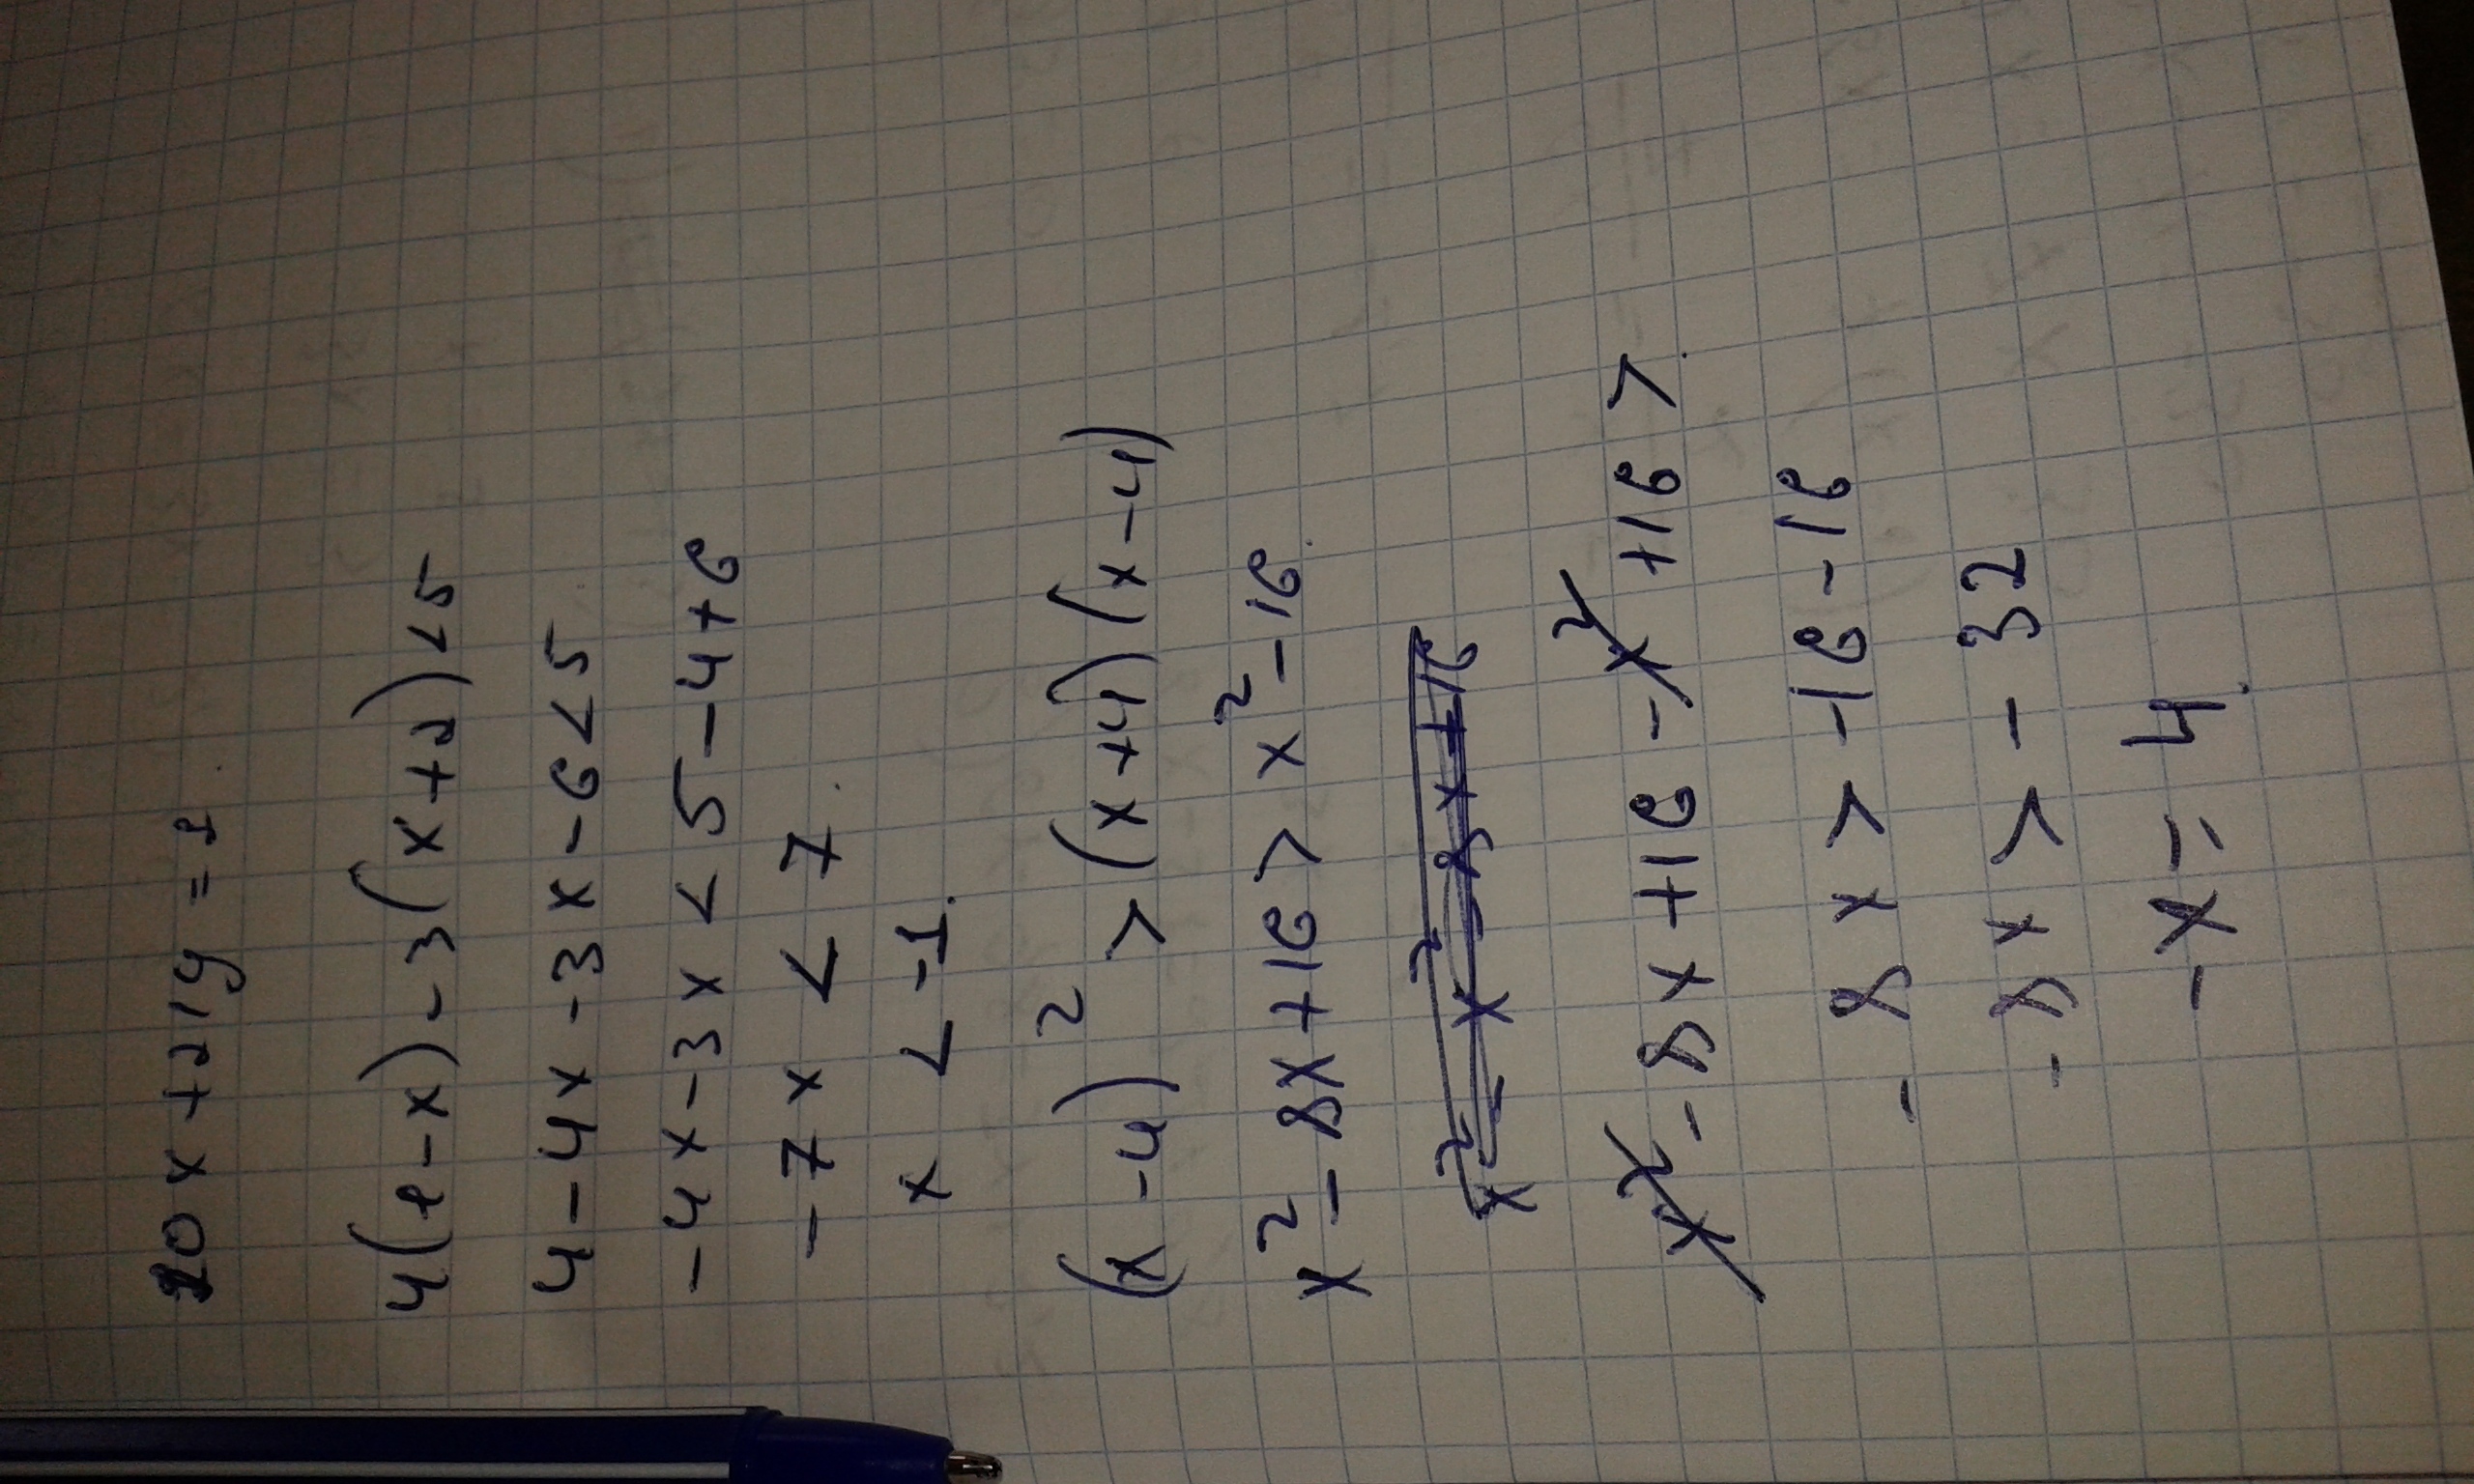 20x + 21y = 1
4(1-x) - 3(x+2) < 5
4 - 4x - 3x - 6 < 5
-4x - 3x < 5 - 4 + 6
-7x < 7
x < -1
(x-4)² > (x+4)(x-4)
x² - 8x + 16 > x² - 16
x² - x² - 8x + 16
x² - 8x + 16 - x² + 16 >
-8x > -16 - 16
-8x > -32
-x = 4